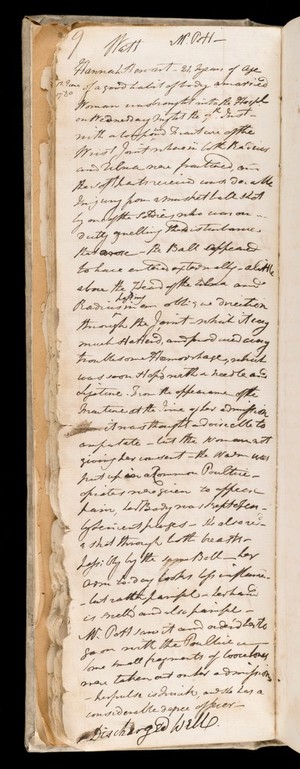 9 Watt Mr. Pott —
Hannah Stewart - 21 years of Age
of a good habit of body a married
Woman was brought into the Hospl
on Wednesday Night the 7th Inst -
with a Compound Fracture of the
Wrist Joint wherein both the Radius
and Ulna were fractured, and
the soft parts received considerable
Injury from a musket ball shot
by one of the Soldiers, who was on
duty quelling the disturbance
that arose - the Ball appeared
to have entered externally - a little
above the Head of the Ulna and
Radius in an oblique direction
through the Joint - which it very
much shattered, and produced a very
troublesome Hæmorrhage, which
was soon stop'd with a needle and
Ligature - From the appearance of the
fracture at the time of her admission
it was thought adviseable to
amputate - but the Woman not
giving her consent - the Wound was
put up in a Common Poultice -
opiates were given to appease
pain, her Body was kept open
by lenient purges - She also rec'd
a shot through both breasts -
possibly by the same Ball - her
arm to-day looks less inflamed
- but rather painful - her hand
is swell'd and also painful -
Mr. Pott saw it and ordered her to
go on with the Poultice -
some small fragments of loose bones
were taken out on her admission
- her pulse is quick, and she has a
considerable degree of fever -
Discharged Well